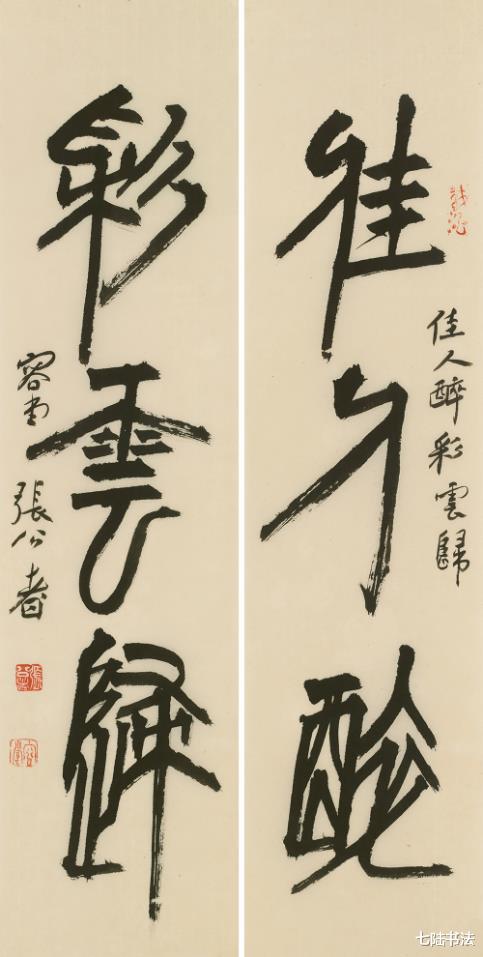 佳人醉
佳人醉彩雲歸
彩雲歸
容堂 張公者
七陆书法